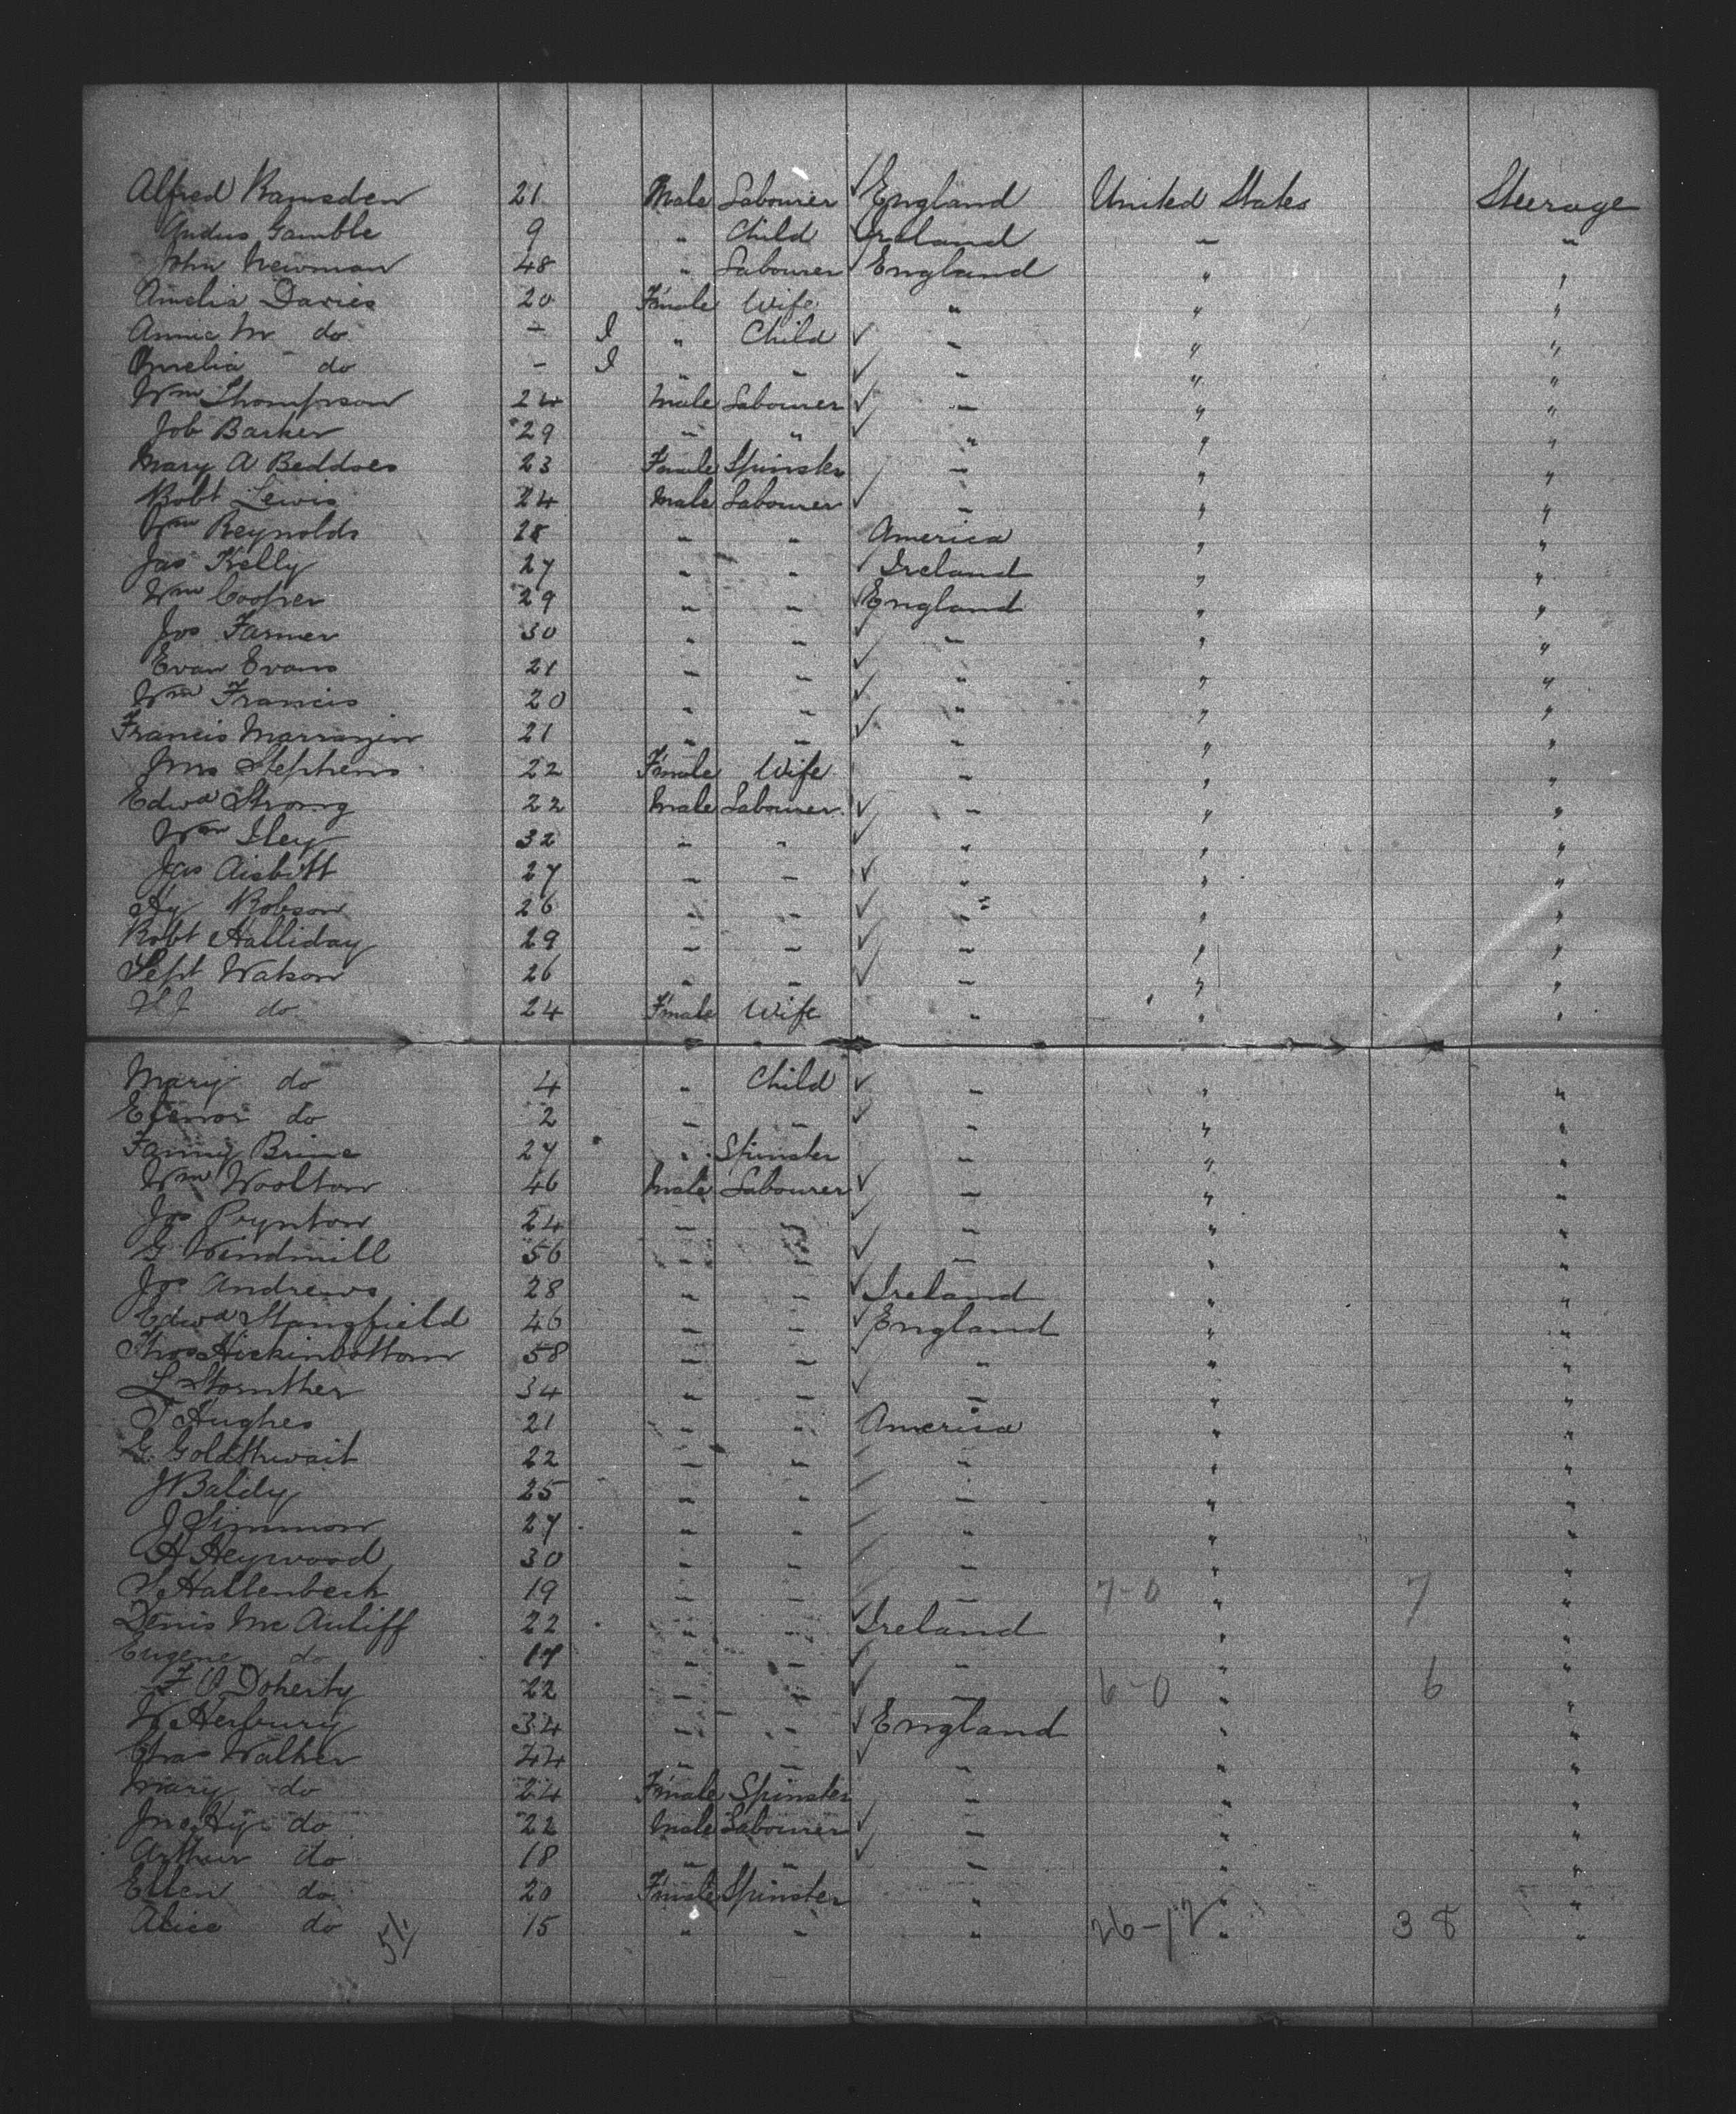 Alfred Ramsden 21 Male Labourer ✓ England United States Steerage
Andus Gamble 9 " Child ✓ Ireland " "
John Newman 48 " Labourer ✓ England " "
Amelia Davies 20 Female Wife " " "
Annie M do - I " Child ✓ " " "
Amelia do - I " " ✓ " " "
Wm Thompson 24 Male Labourer ✓ " " "
Job Barker 29 " " ✓ " " "
Mary A Beddoes 23 Female Spinster " " "
Robt Lewis 24 Male Labourer ✓ " " "
Wm Reynolds 28 " " America " "
Jas Kelly 27 " " ✓ Ireland " "
Wm Cooper 29 " " ✓ England " "
Jos Farmer 30 " " ✓ " " "
Evan Evans 21 " " ✓ " " "
Wm Francis 20 " " ✓ " " "
Francis 21 " " ✓ " " "
Stephens 22 Female Wife " " "
Edwd Strong 22 Male Labourer ✓ " " "
Wm Iley 32 " " ✓ " " "
Jas Aisbitt 27 " " ✓ " " "
Hy Robson 26 " " ✓ " " "
Robt Halliday 29 " " ✓ " " "
Sept Watson 26 " " ✓ " " "
do 24 Female Wife " " "
Mary do 4 " Child ✓ " " "
Elenor do 2 " " ✓ " " "
Fanny Brine 27 " Spinster " " "
Wm Woolton 46 Male Labourer ✓ " " "
Jos Poynton 24 " " ✓ " " "
G Windmill 56 " " ✓ " " "
Jos Andrews 28 " " ✓ Ireland " "
Edwd Stansfield 46 " " ✓ England " "
Thos Hickinbottom 58 " " " " "
L Stornther 34 " " ✓ " " "
T Hughes 21 " " America " "
G. Goldthwait 22 " " " " "
J Baldy 25 " " " " "
J Simmon 27 " " " " "
H Heywood 30 " " " " "
S Hallenbeck 19 " " " 7-0 " 7 "
Denis Mc Auliff 22 " " ✓ Ireland " "
Eugene do 17 " " ✓ " " "
F O Doherty 22 " " ✓ " 6-0 " 6 "
W Herbury 34 " " ✓ England " "
Chas Walker 44 " " ✓ " " "
Mary do 24 Female Spinster " " "
Jno Hy do 22 Male Labourer ✓ " " "
Arthur do 18 " " ✓ " " "
Ellen do 20 Female Spinster " " "
Alice do 51 15 " " " 26-12 " 38 "